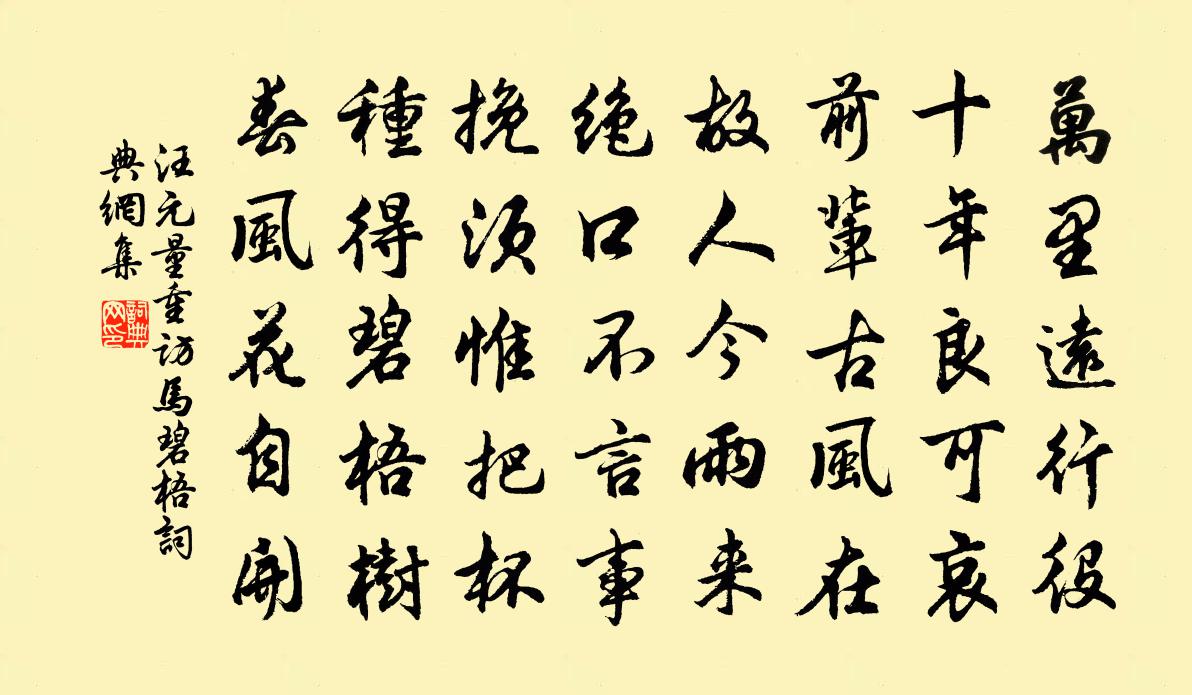 萬里遠行役
十年良可哀
前輩古風在
故人今雨来
絶口不言事
挽须惟把杯
種得碧梧樹
春風花自開
汪元量重访馬碧梧詞
典網集
詞典网印